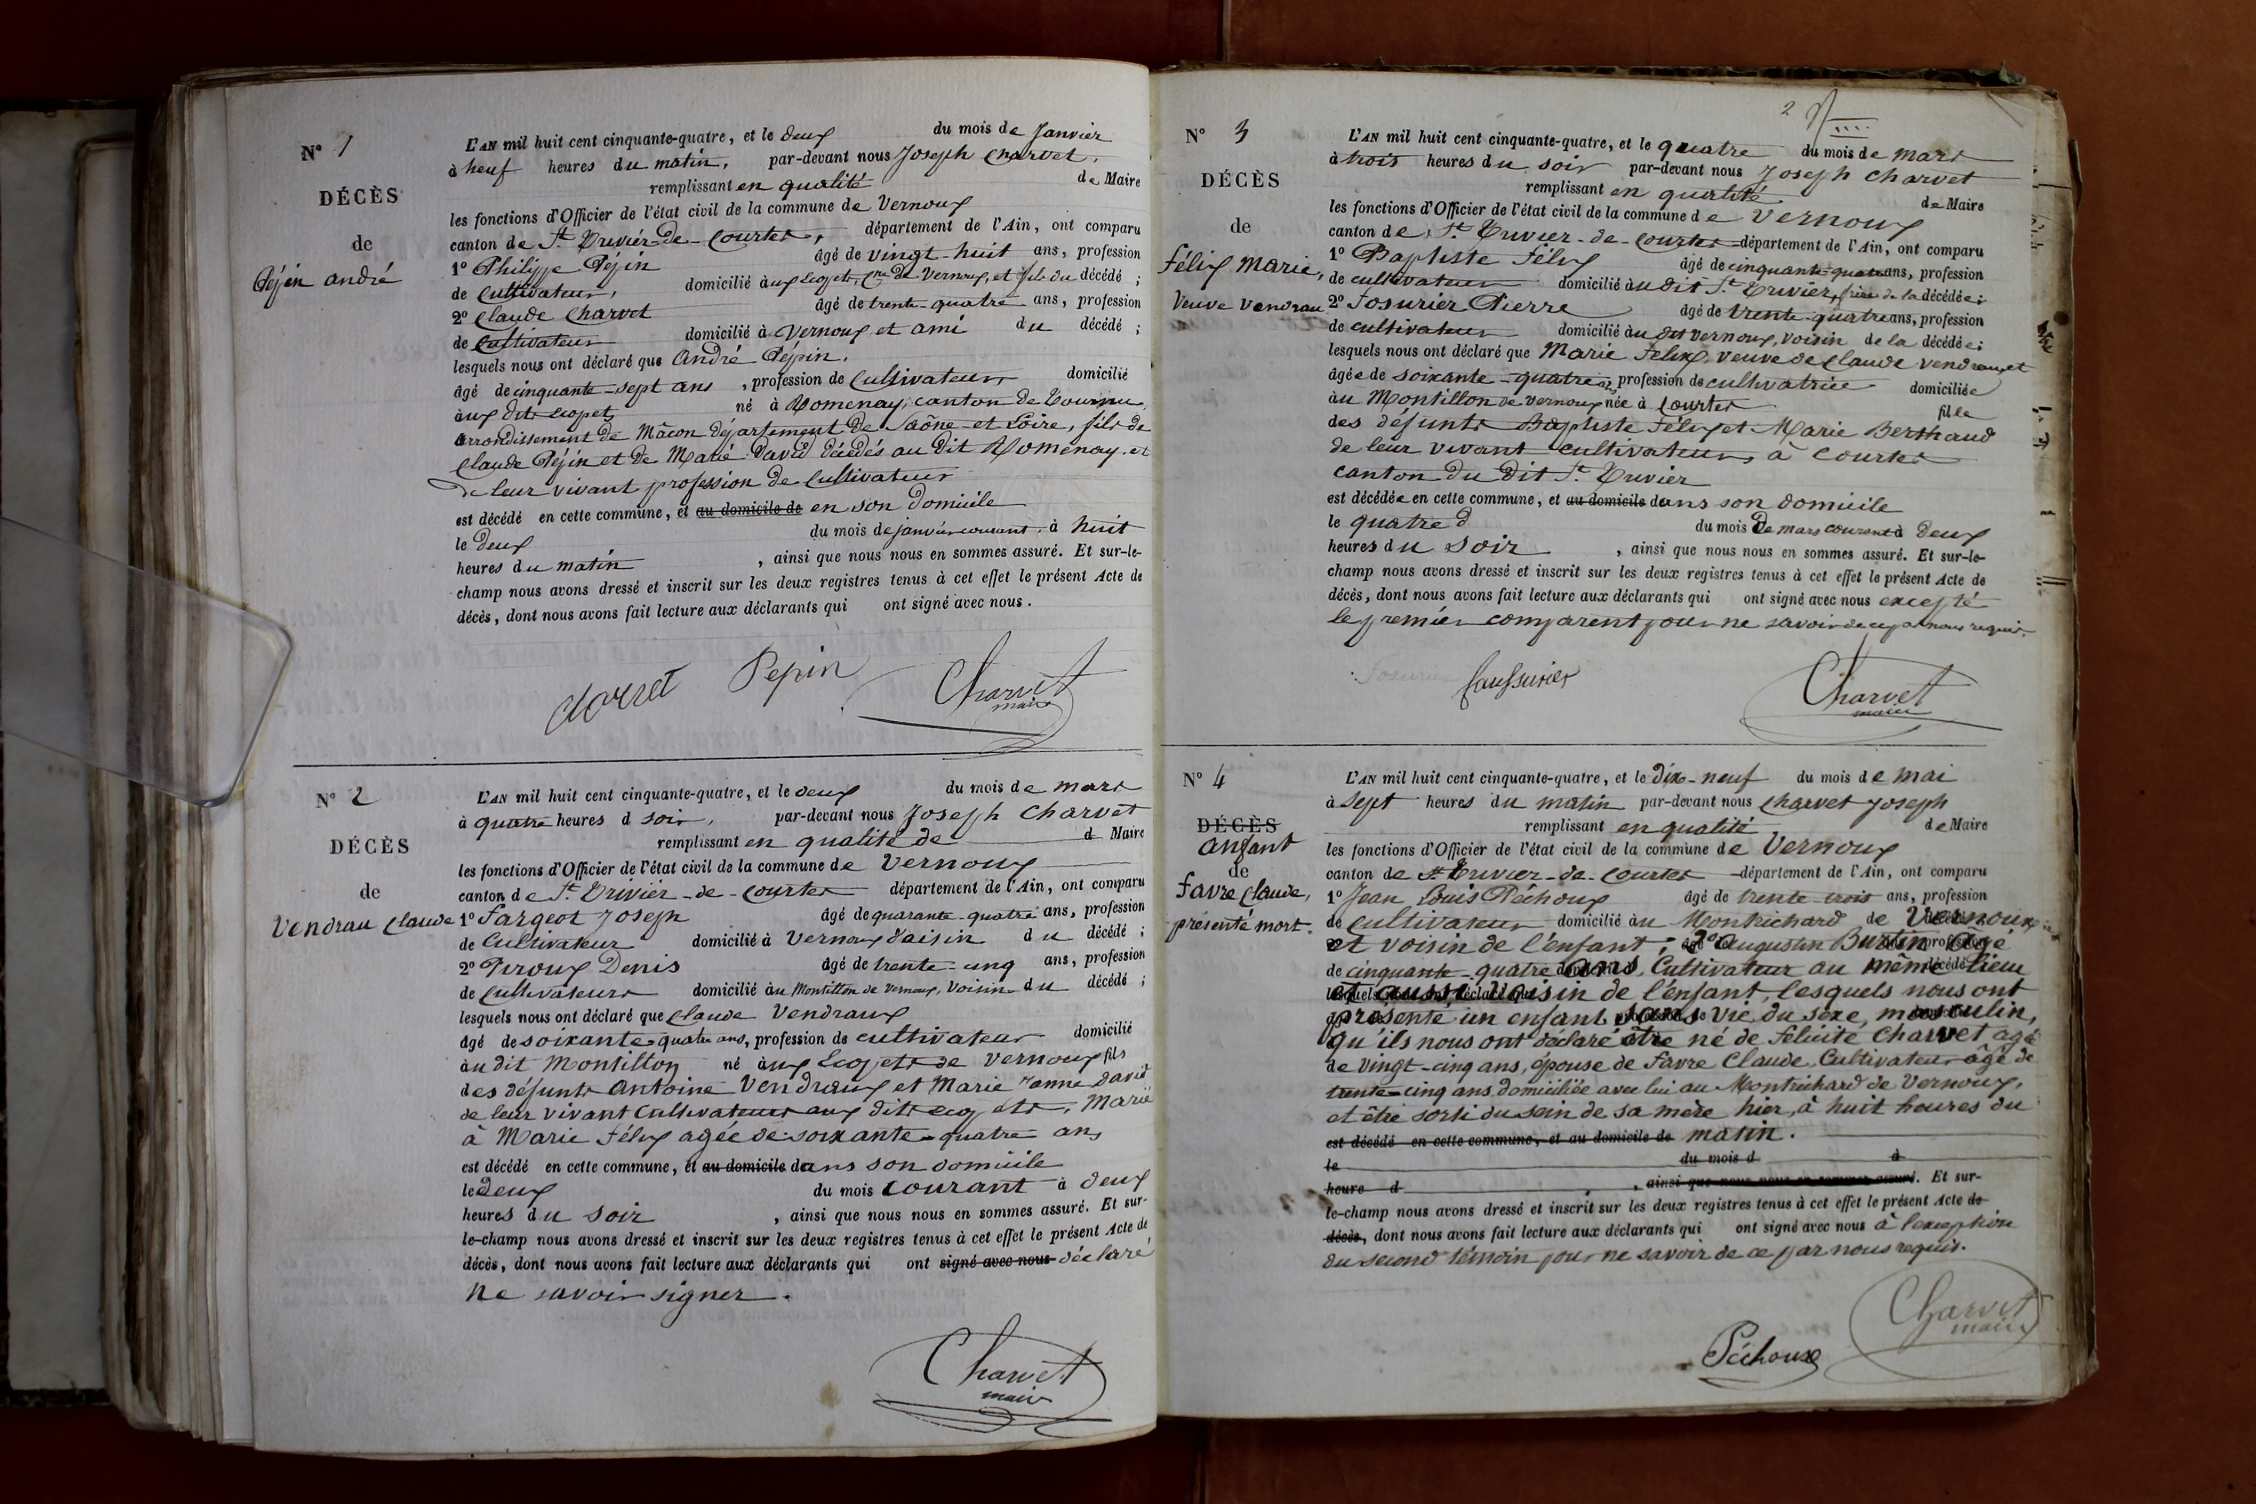 N° 1
DÉCÈS
de
Pépin André
L'AN mil huit cent cinquante-quatre, et le deux du mois de Janvier
à neuf heures du matin, par-devant nous Joseph Charvet,
remplissant en qualité de Maire
les fonctions d'Officier de l'état civil de la commune de Vernoux
canton de St Trivier-de-Courtes, département de l'Ain, ont comparu
1° Philippe Pépin âgé de vingt-huit ans, profession
de cultivateur, domicilié aux Écopets, Cne de Vernoux, et fils du décédé ;
2° Claude Charvet âgé de trente-quatre ans, profession
de cultivateur domicilié à Vernoux et ami du décédé ;
lesquels nous ont déclaré que André Pépin,
âgé de cinquante-sept ans, profession de cultivateur domicilié
aux dits Écopets né à Romenay, canton de Tournu,
arrondissement de Mâcon département de Saône-et-Loire, fils de
Claude Pépin et de Marie David décédés au dit Romenay et
de leur vivant profession de cultivateur
est décédé en cette commune, et au domicile de en son domicile
le deux du mois de janvier courant à huit
heures du matin, ainsi que nous nous en sommes assuré. Et sur-le-
champ nous avons dressé et inscrit sur les deux registres tenus à cet effet le présent Acte de
décès, dont nous avons fait lecture aux déclarants qui ont signé avec nous.
Pepin Charvet
maire
N° 2
DÉCÈS
de
Vendrau Claude
L'AN mil huit cent cinquante-quatre, et le deux du mois de mars
à quatre heures d soir, par-devant nous Joseph Charvet
remplissant en qualité de d Maire
les fonctions d'Officier de l'état civil de la commune de Vernoux
canton de St Trivier-de-Courtes département de l'Ain, ont comparu
1° Fargeot Joseph âgé de quarante-quatre ans, profession
de Cultivateur domicilié à Vernoux Voisin du décédé ;
2° Piroux Denis âgé de trente-cinq ans, profession
de cultivateurs domicilié au Montillon de Vernoux, Voisin du décédé ;
lesquels nous ont déclaré que Claude Vendraux
âgé de soixante-quatre ans, profession de cultivateur domicilié
au dit Montillon né aux Écopets de Vernoux fils
des défunts Antoine Vendraux et Marie Janne David
de leur vivant Cultivateurs aux dits Écopets, Marié
à Marie Félix agée de soixante-quatre ans
est décédé en cette commune, et au domicile dans son domicile
le deux du mois courant à deux
heures du soir, ainsi que nous nous en sommes assuré. Et sur-
le-champ nous avons dressé et inscrit sur les deux registres tenus à cet effet le présent Acte de
décès, dont nous avons fait lecture aux déclarants qui ont signé avec nous déclaré
ne savoir signer.
Charvet
maire
2
N° 3
DÉCÈS
de
Félix Marie,
Veuve Vendrau
L'AN mil huit cent cinquante-quatre, et le quatre du mois de mars
à trois heures du soir par-devant nous Joseph Charvet
remplissant en qualité de Maire
les fonctions d'Officier de l'état civil de la commune de Vernoux
canton de St Trivier-de-Courtes département de l'Ain, ont comparu
1° Baptiste Félix âgé de cinquante-quatre ans, profession
de cultivateur domicilié au dit St Trivier, frère de la décédée ;
2° Fosurier Pierre âgé de trente-quatre ans, profession
de cultivateur domicilié au dit Vernoux, voisin de la décédée ;
lesquels nous ont déclaré que Marie Félix, veuve de Claude Vendraux, et
âgée de soixante-quatre ans, profession de cultivatrice domiciliée
au Montillon de Vernoux née à Courtes fille
des défunts Baptiste Félix et Marie Berthaud
de leur vivant cultivateurs à Courtes
canton du dit St Trivier
est décédée en cette commune, et au domicile dans son domicile
le quatre d du mois de mars courant à deux
heures du soir, ainsi que nous nous en sommes assuré. Et sur-le-
champ nous avons dressé et inscrit sur les deux registres tenus à cet effet le présent Acte de
décès, dont nous avons fait lecture aux déclarants qui ont signé avec nous excepté
le premier comparent pour ne savoir de ce par nous requis.
Faussurier Charvet
maire
N° 4
DÉCÈS
enfant
de
Favre Claude,
présenté mort.
L'AN mil huit cent cinquante-quatre, et le dix-neuf du mois de mai
à sept heures du matin par-devant nous Charvet Joseph
remplissant en qualité de Maire
les fonctions d'Officier de l'état civil de la commune de Vernoux
canton de St Trivier-de-Courtes département de l'Ain, ont comparu
1° Jean Louis Péchoux âgé de trente-trois ans, profession
de cultivateur domicilié au Montrichard de Vernoux
et voisin de l'enfant ; 2° Augustin Burtin âgé
de cinquante-quatre ans, Cultivateur au même lieu
et aussi voisin de l'enfant, lesquels nous ont
présenté un enfant sans vie, du sexe masculin,
qu'ils nous ont déclaré être né de Félicité Charvet agé
de vingt-cinq ans, épouse de Favre Claude, Cultivateur âgé de
trente-cinq ans domiciliée avec lui au Montrichard de Vernoux,
et être sorti du sein de sa mère hier, à huit heures du
est décédé en cette commune, et au domicile de matin.
le du mois d à
heure d, ainsi que nous nous en sommes assuré. Et sur-
le-champ nous avons dressé et inscrit sur les deux registres tenus à cet effet le présent Acte de
décès, dont nous avons fait lecture aux déclarants qui ont signé avec nous à l'exception
du second témoin pour ne savoir de ce par nous requis.
Charvet
maire
Péchoux